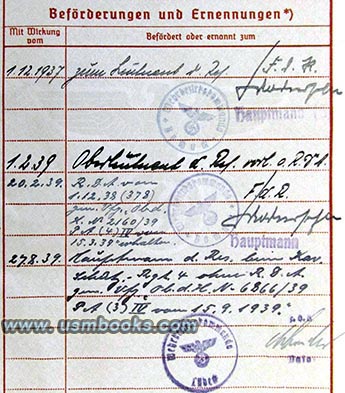 Beförderungen und Ernennungen*)
Mit Wirkung vom
Befördert oder ernannt zum
1.12.1937 zum Leutnant d. Res. F. d. R.
Hauptmann
1.2.39. Oberleutnant d. Res. vorl. o. R.D.A.
20.2.39. R.D.A. vom F. d. R.
1.12.38 (378)
gem. Vfg. Ob.d.
H. Nr 2160/39
P.A. (4) IV vom
15.3.39 erhalten.
Hauptmann
27.8.39. Hauptmann d. Res. beim
Rgt. 4 ohne R.D.A.
gem. Vfg. Ob.d.H. Nr 6866/39
P.A. (3) IV vom 15.9.1939.
www.usmbooks.com